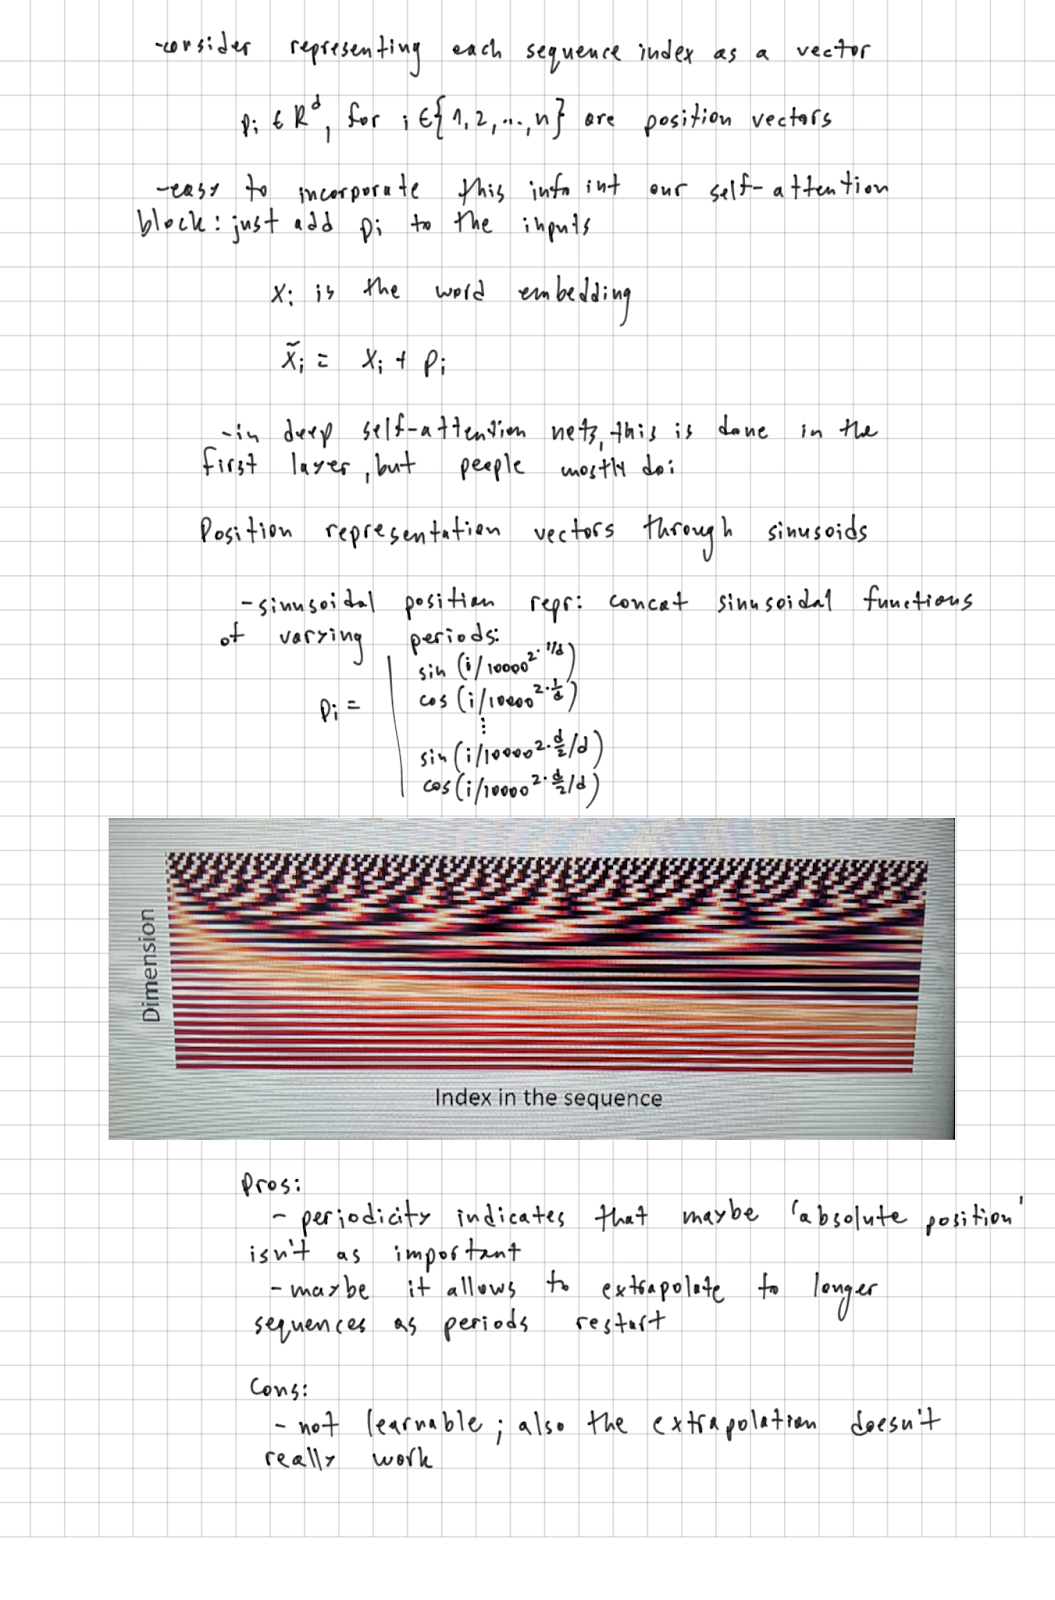 -consider representing each sequence index as a vector
pi ∈ R^d, for i ∈ {1,2,...,n} are position vectors
-easy to incorporate this info int our self-attention
block: just add pi to the inputs
xi is the word embedding
x̃i = xi + pi
-in deep self-attention nets, this is done in the
first layer, but people mostly do:
Position representation vectors through sinusoids
-sinusoidal position repr: concat sinusoidal functions
of varying periods:
sin (i/10000^2·1/d)
cos (i/10000^2·1/d)
pi =
⋮
sin (i/10000^2·d/2/d)
cos (i/10000^2·d/2/d)
Dimension
Index in the sequence
Pros:
- periodicity indicates that maybe 'absolute position'
isn't as important
- maybe it allows to extrapolate to longer
sequences as periods restart
Cons:
- not learnable; also the extrapolation doesn't
really work